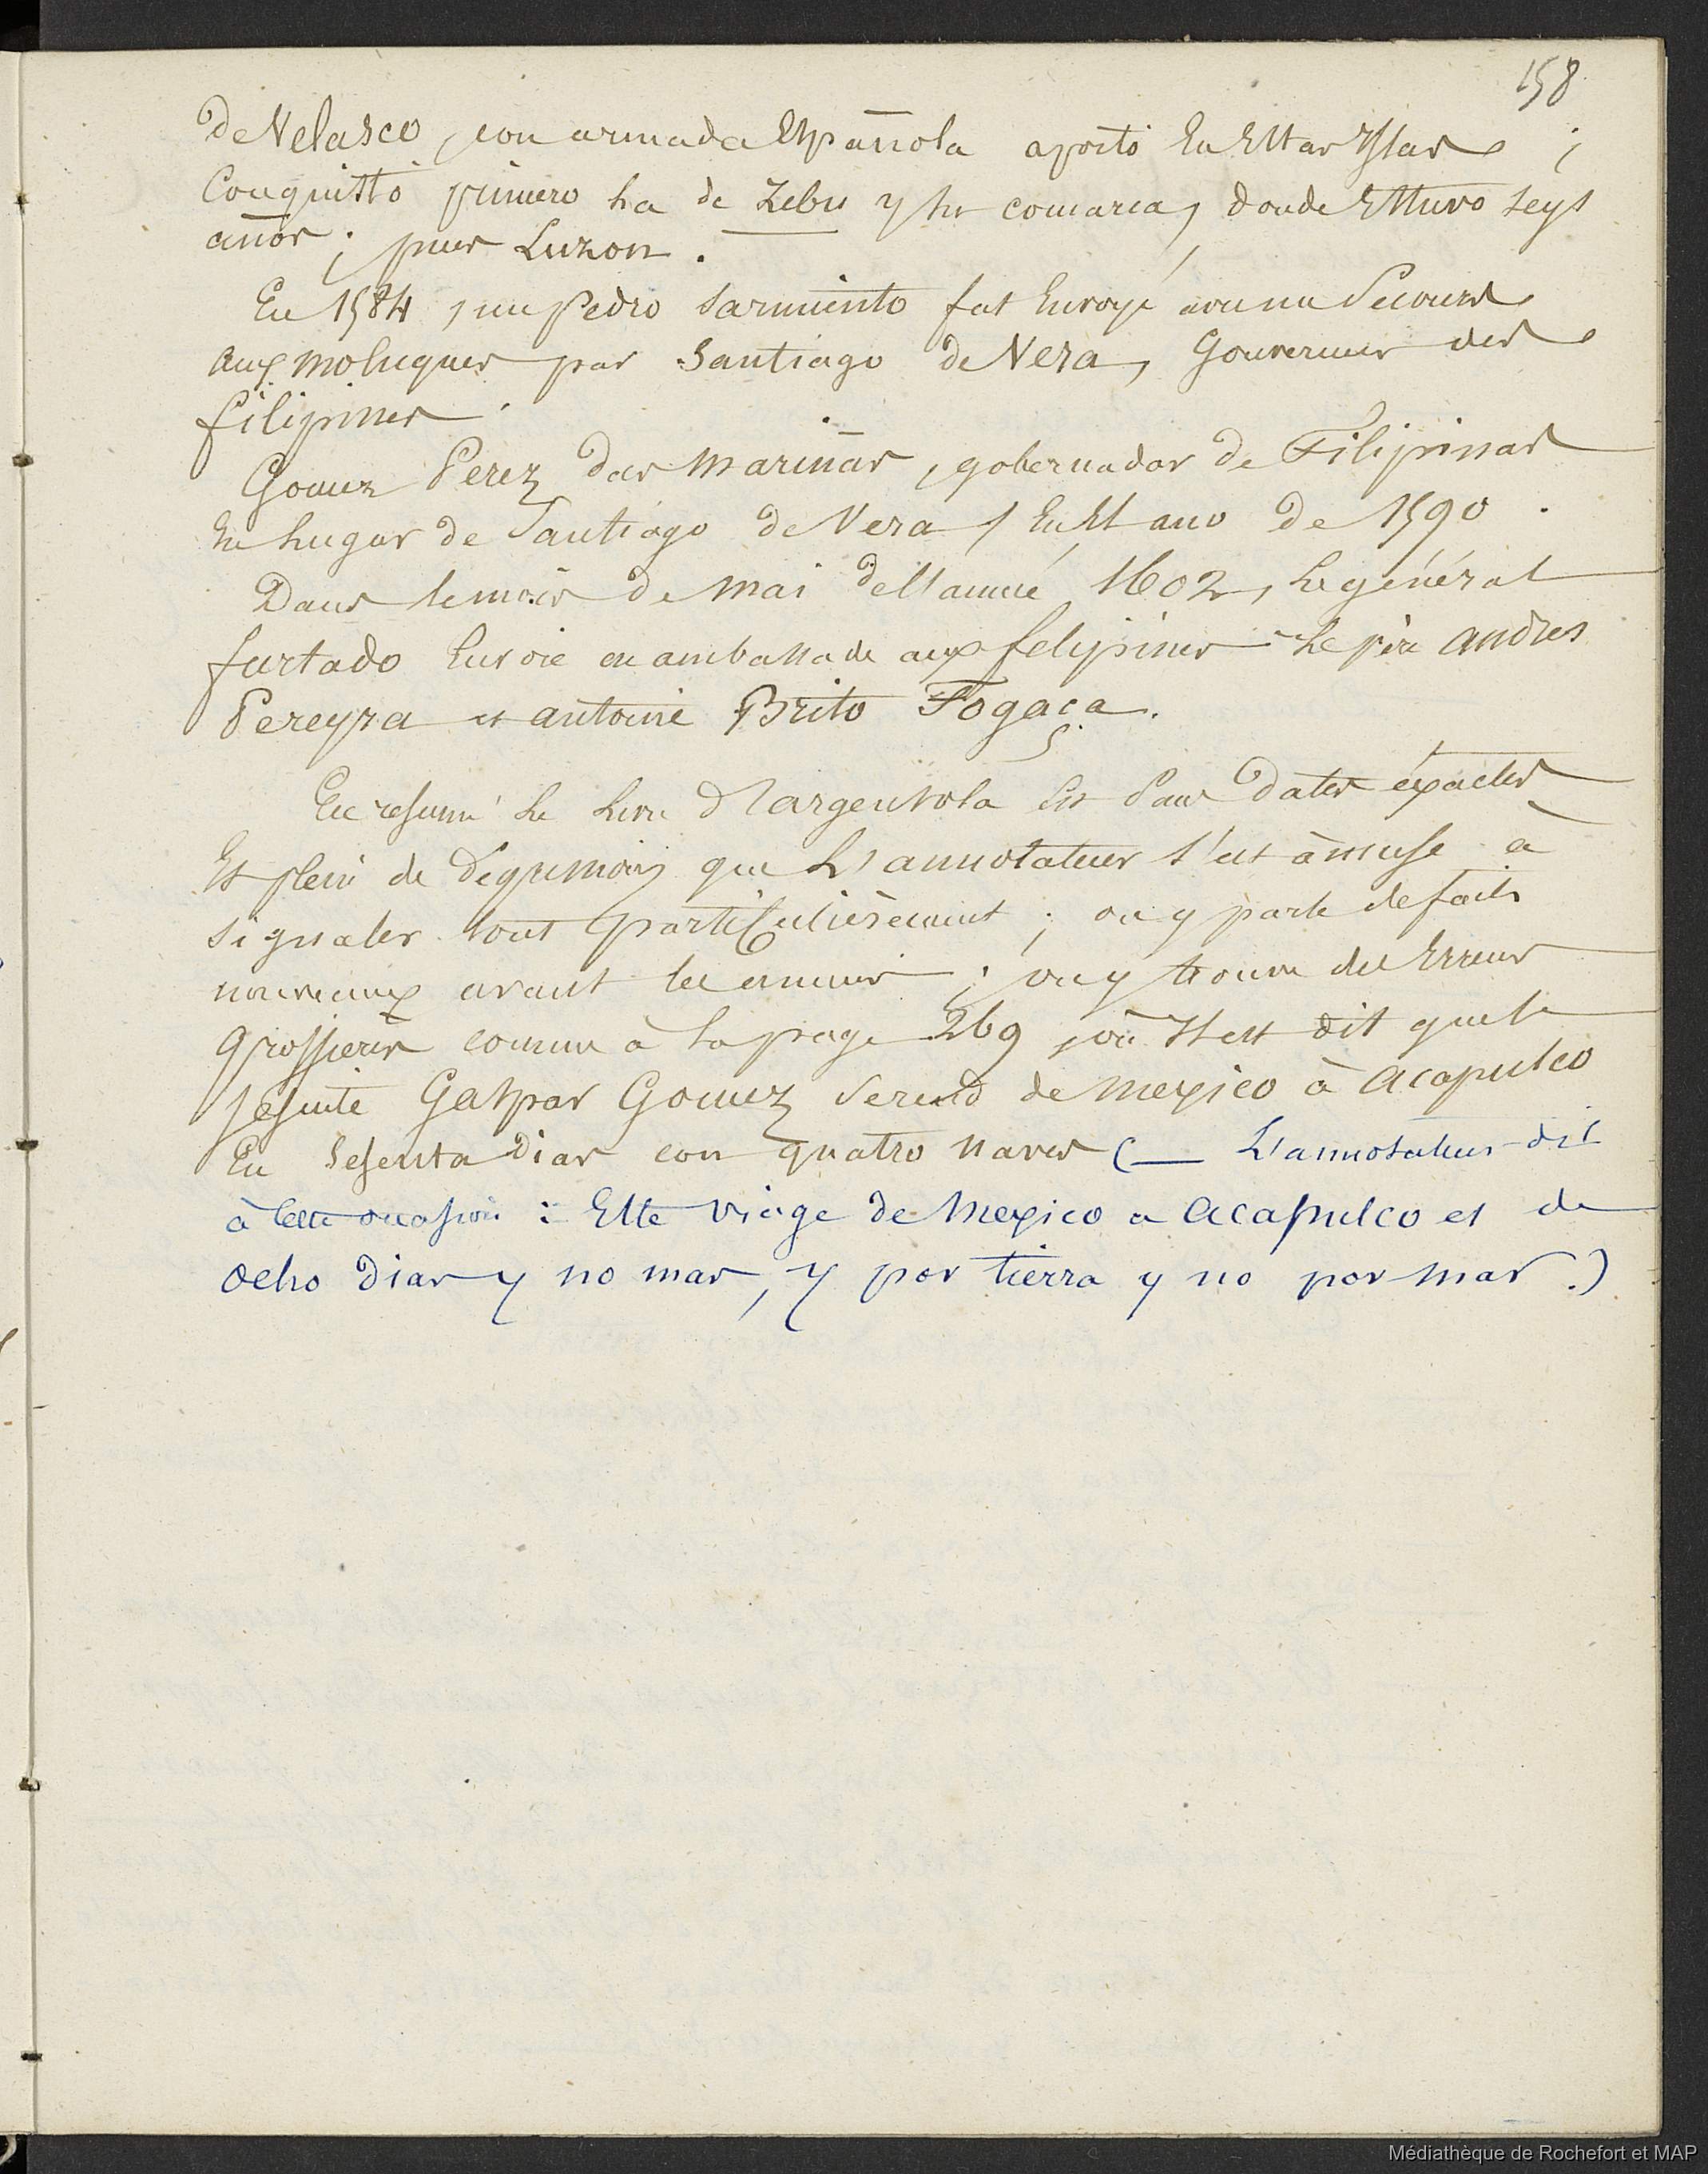 158
de Velasco, con armada Española aportò en Estas Yslas ;
Conquistò primero la de Zebu y su comarca, donde Estuvo seys
años ; pues Luzon .
En 1584, un Pedro Sarmiento fut Envoyé avec un Secours
aux moluques par Santiago de Vera, Gouverneur des
filipines .
Gomez Perez das Mariñas, gobernador de Filipinas
En Lugar de Santiago de Vera, En El ano de 1590 .
Dans le mois de mai de l'année 1602, Le général
furtado Envoie en ambassade aux felipines le père andres
Pereyra et antoine Brito Fogaça.
En resumé Le Livre d'Largensola Est Sans dates éxactes
Et plein de digressions que L'annotateur s'est àmusé à
signaler tout particulièrement ; on y parle de faits
nouveaux avant les anciens ; on y trouve des Erreurs
grossières comme à La page 269, où Il est dit que le
jesuite Gaspar Gomez se rend de mexico à acapulco
En Sesenta dias con quatro naves (— L'annotateur dit
à Cette occasion : Este viage de Mexico a acapulco es de
ocho dias y no mas, y por tierra y no por mar .)
Médiathèque de Rochefort et MAP